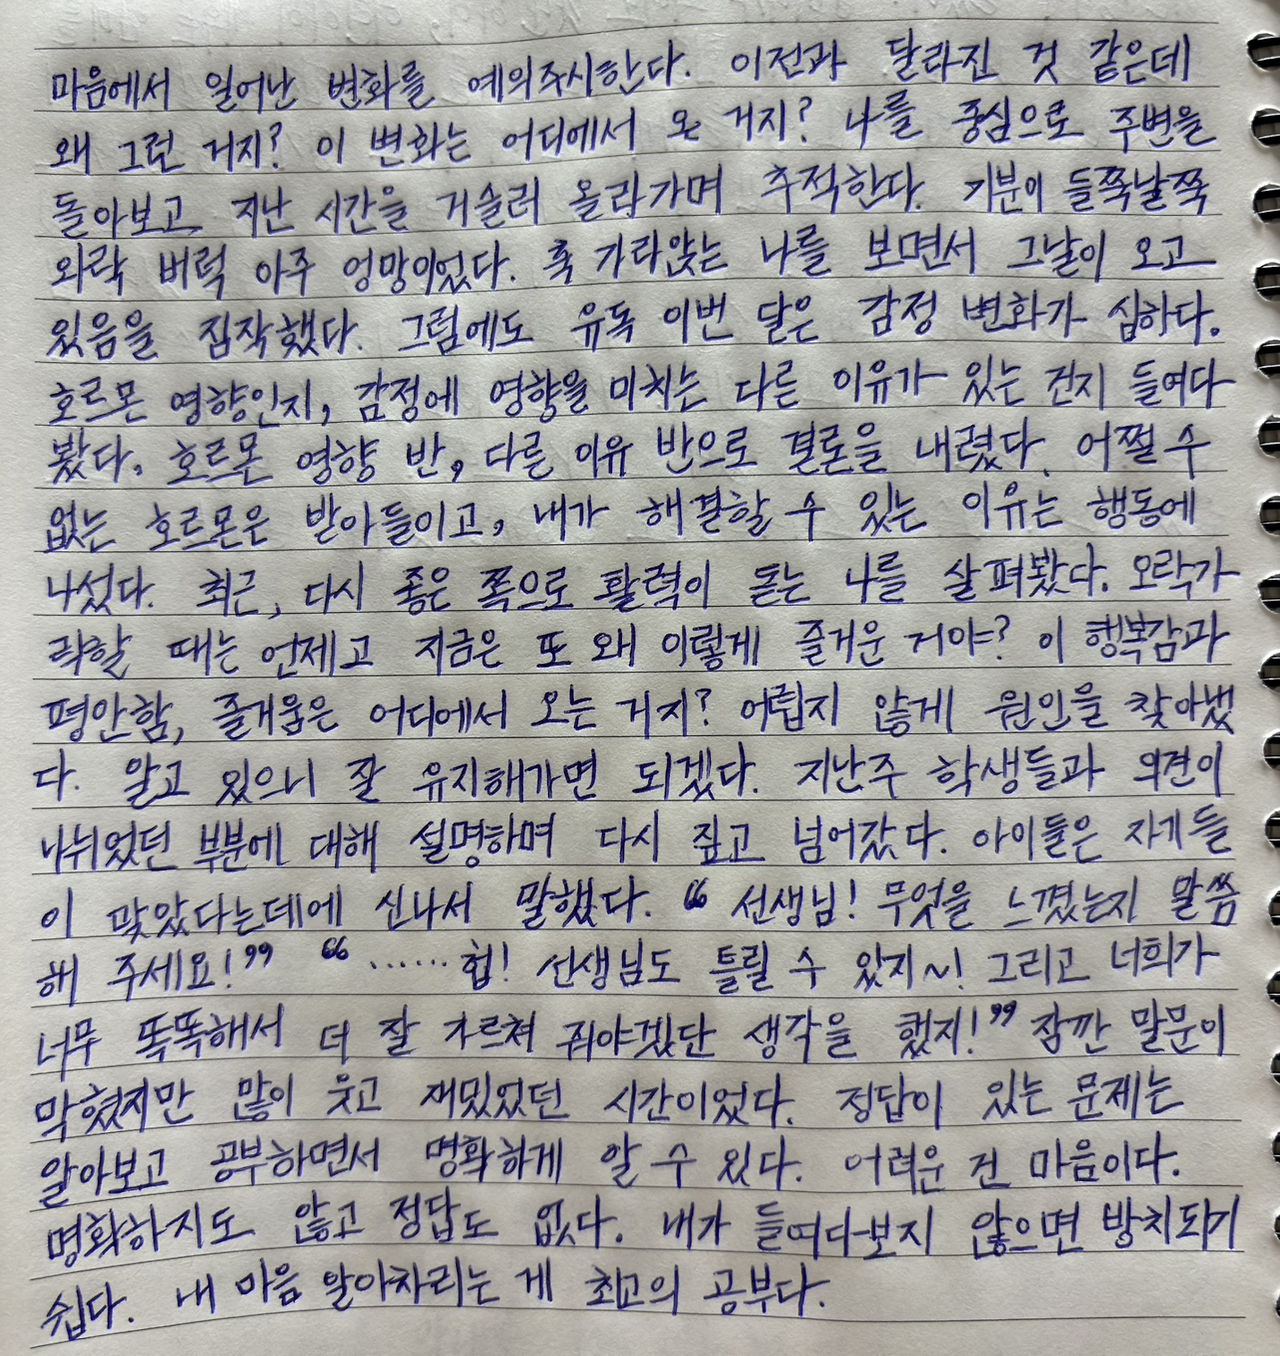 마음에서 일어난 변화를 예의주시한다. 이전과 달라진 것 같은데
왜 그런 거지? 이 변화는 어디에서 온 거지? 나를 중심으로 주변을
돌아보고 지난 시간을 거슬러 올라가며 추적한다. 기분이 들쭉날쭉
와락 버럭 아주 엉망이었다. 훅 가라앉는 나를 보면서 그날이 오고
있음을 짐작했다. 그럼에도 유독 이번 달은 감정 변화가 심하다.
호르몬 영향인지, 감정에 영향을 미치는 다른 이유가 있는 건지 들여다
봤다. 호르몬 영향 반, 다른 이유 반으로 결론을 내렸다. 어쩔 수
없는 호르몬은 받아들이고, 내가 해결할 수 있는 이유는 행동에
나섰다. 최근, 다시 좋은 쪽으로 활력이 돋는 나를 살펴봤다. 오락가
락할 때는 언제고 지금은 또 왜 이렇게 즐거운 거야? 이 행복감과
평안함, 즐거움은 어디에서 오는 거지? 어렵지 않게 원인을 찾아냈
다. 알고 있으니 잘 유지해가면 되겠다. 지난주 학생들과 의견이
나뉘었던 부분에 대해 설명하며 다시 짚고 넘어갔다. 아이들은 자기들
이 맞았다는데에 신나서 말했다. “ 선생님! 무엇을 느꼈는지 말씀
해 주세요!” “ ……헙! 선생님도 틀릴 수 있지~! 그리고 너희가
너무 똑똑해서 더 잘 가르쳐 줘야겠단 생각을 했지!” 잠깐 말문이
막혔지만 많이 웃고 재밌었던 시간이었다. 정답이 있는 문제는
알아보고 공부하면서 명확하게 알 수 있다. 어려운 건 마음이다.
명확하지도 않고 정답도 없다. 내가 들여다보지 않으면 방치되기
쉽다. 내 마음 알아차리는 게 최고의 공부다.